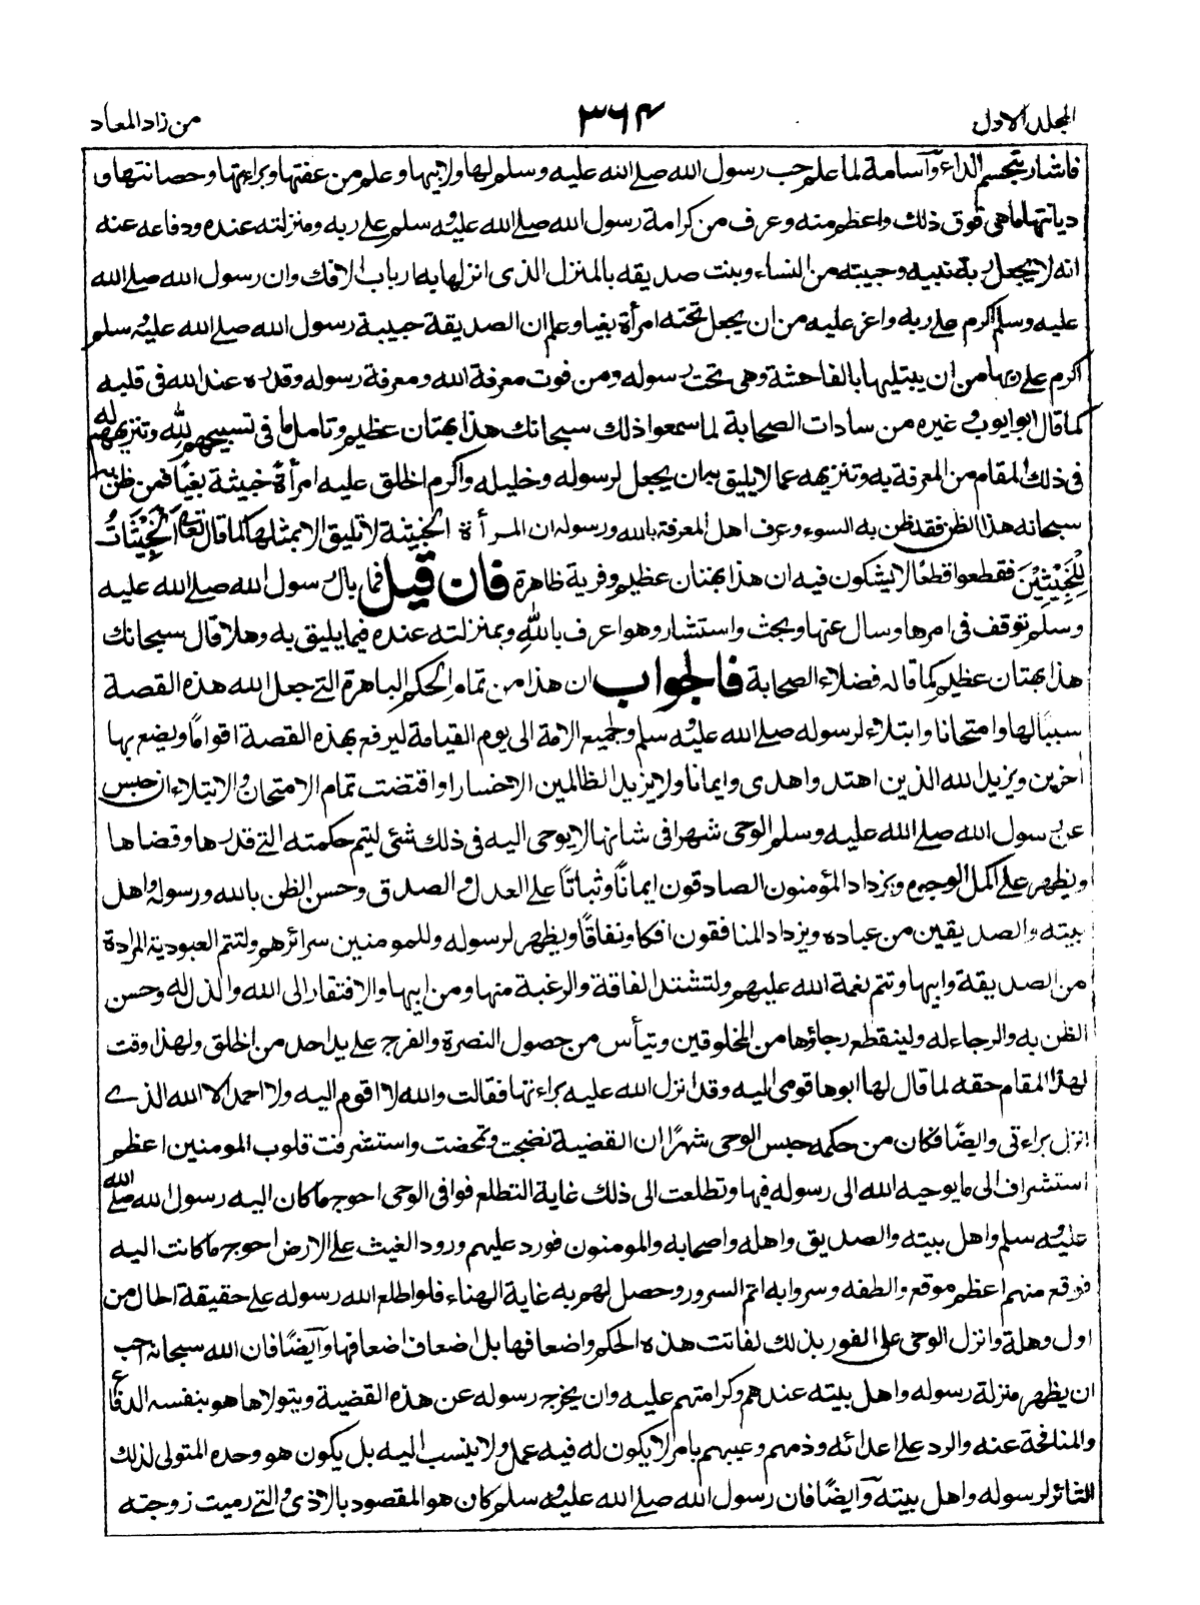 المجلد الاول
٣٦٤
من زاد المعاد
فاشار بحسم الداء وآسامة لما علم حب رسول الله صلے الله عليه وسلم لها ولابيها وعلم من عفتها وبراءتها وحصانتها و
ديانتها ماهى فوق ذلك واعظم منه وعرف من كرامة رسول الله صلے الله عليه وسلم علے ربه ومنزلته عنده ودفاعه عنه
انه لا يجعل ربة نبيه وحبيبته من النساء وبنت صديقه بالمنزل الذى انزلها به ارباب الافك وان رسول الله صلے الله
عليه وسلم اكرم علے ربه واعز عليه من ان يجعل تحته امرأة بغيا وعلم ان الصديقة حبيبة رسول الله صلے الله عليه وسلم
اكرم علے ربها من ان يبتليها بالفاحشة وهى تحت رسوله ومن قوت معرفة الله ومعرفة رسوله وقدره عند الله فى قلبه
كما قال ابو ايوب وغيره من سادات الصحابة لما سمعوا ذلك سبحانك هذا بهتان عظيم وتامل ما فى تسبيحهم لله وتنزيههم له
فى ذلك المقام من المعرفة به وتنزيهه عما لا يليق به ان يجعل لرسوله وخليله واكرم الخلق عليه امرأة خبيثة بغيًا فمن ظن به
سبحانه هذا الظن فقد ظن به السوء وعرف اهل المعرفة بالله ورسوله ان المرأة الخبيثة لا تليق الا بمثلها كما قال تعالى اَلْخَبِيْثَاتُ
لِلْخَبِيْثِيْنَ فقطعوا قطعًا لا يشكون فيه ان هذا بهتان عظيم وفرية ظاهرة فان قيل فما بال رسول الله صلے الله عليه
وسلم توقف فى امرها وسال عنها وبحث واستشار وهو اعرف بالله وبمنزلته عنده فيما يليق به وهلا قال سبحانك
هذا بهتان عظيم كما قاله فضلاء الصحابة فالجواب ان هذا من تمام الحكم الباهرة التے جعل الله هذه القصة
سببًا لها وامتحانا وابتلاء لرسوله صلے الله عليه وسلم ولجميع الامة الى يوم القيامة ليرفع بهذه القصة اقوامًا ويضع بها
اخرين ويزيد الله الذين اهتدوا هدى وايمانا ولا يزيد الظالمين الا خسارا واقتضت تمام الامتحان والابتلاء ان حبس
عن رسول الله صلے الله عليه وسلم الوحى شهرا فى شانها لا يوحى اليه فى ذلك شئى ليتم حكمته التے قدرها وقضاها
ويظهر علے اكمل الوجوه ويزداد المؤمنون الصادقون ايمانًا وثباتًا علے العدل والصدق وحسن الظن بالله ورسوله واهل
بيته والصديقين من عباده ويزداد المنافقون افكا ونفاقًا ويظهر لرسوله وللمومنين سرائرهم ولتتم العبودية المرادة
من الصديقة وابيها وتتم نغمة الله عليهم ولتشتد الفاقة والرغبة منها ومن ابيها والافتقار الى الله والذل له وحسن
الظن به والرجاء له ولينقطع رجاؤها من المخلوقين وتيأس من حصول النصرة والفرج علے يد احد من الخلق ولهذا وقت
لهذا المقام حقه لما قال لها ابوها قومى اليه وقد انزل الله عليه براءتها فقالت والله لا اقوم اليه ولا احمد الا الله الذے
انزل براءتى وايضًا فكان من حكمة حبس الوحى شهرًا ان القضية نضجت وتمحضت واستشرفت قلوب المومنين اعظم
استشراف الى ما يوحيه الله الى رسوله فيها وتطلعت الى ذلك غاية التطلع فوافى الوحى احوج ما كان اليه رسول الله صلے الله
عليه وسلم واهل بيته والصديق واهله واصحابه والمومنون فورد عليهم ورود الغيث علے الارض احوج ما كانت اليه
فوقع منهم اعظم موقع والطفه وسروا به اتم السرور وحصل لهم به غاية الهناء فلو اطلع الله رسوله علے حقيقة الحال من
اول وهلة وانزل الوحى على الفور بذلك لفاتت هذه الحكم واضعافها بل اضعاف اضعافها وآيضًا فان الله سبحانه احب
ان يظهر منزلة رسوله واهل بيته عندهم وكرامتهم عليه وان يخرج رسوله عن هذه القضية ويتولاها هو بنفسه الدفاع
والمنافحة عنه والرد علے اعدائه وذمهم وعيبهم بامر لا يكون له فيه عمل ولا ينسب اليه بل يكون هو وحده المتولى لذلك
الثائر لرسوله واهل بيته وآيضًا فان رسول الله صلے الله عليه وسلم كان هو المقصود بالاذى والتے رميت زوجته